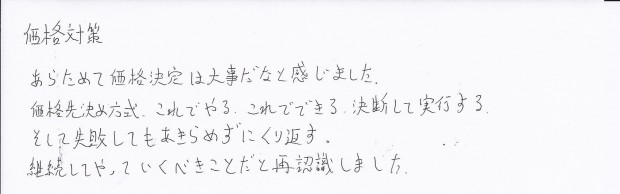 価格対策
あらためて価格決定は大事だなと感じました.
価格先決め方式.これでやる.これでできる.決断して実行する.
そして失敗してもあきらめずにくり返す.
継続してやっていくべきことだと再認識しました.